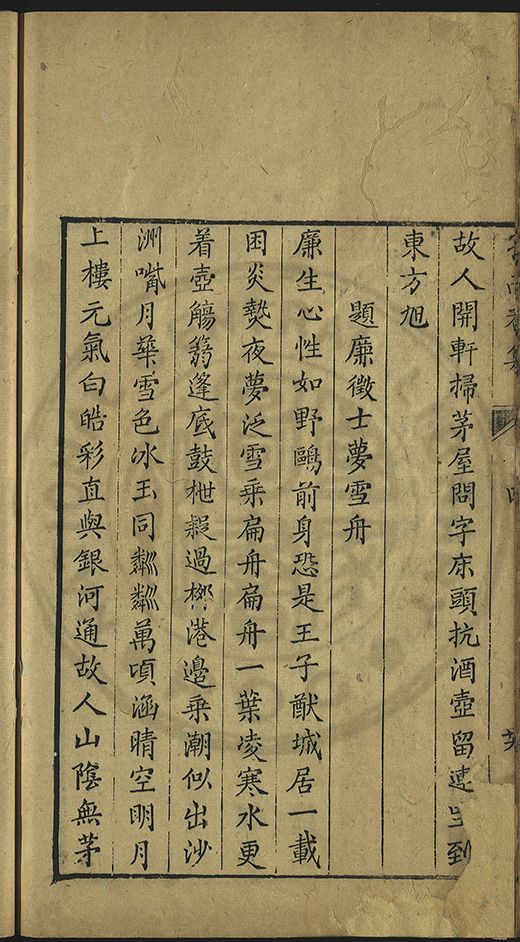 故人開軒掃茅屋問字床頭抗酒壺留連直到
東方旭
題廉徵士夢雪舟
廉生心性如野鷗前身恐是王子猷城居一載
困炎熱夜夢泛雪乘扁舟扁舟一葉凌寒水更
着壺觴蒻篷底鼓枻經過柳港邊乘潮似出沙
洲嘴月華雪色冰玉同粼粼萬頃涵晴空明月
上樓元氣白皓彩直與銀河通故人山陰無茅